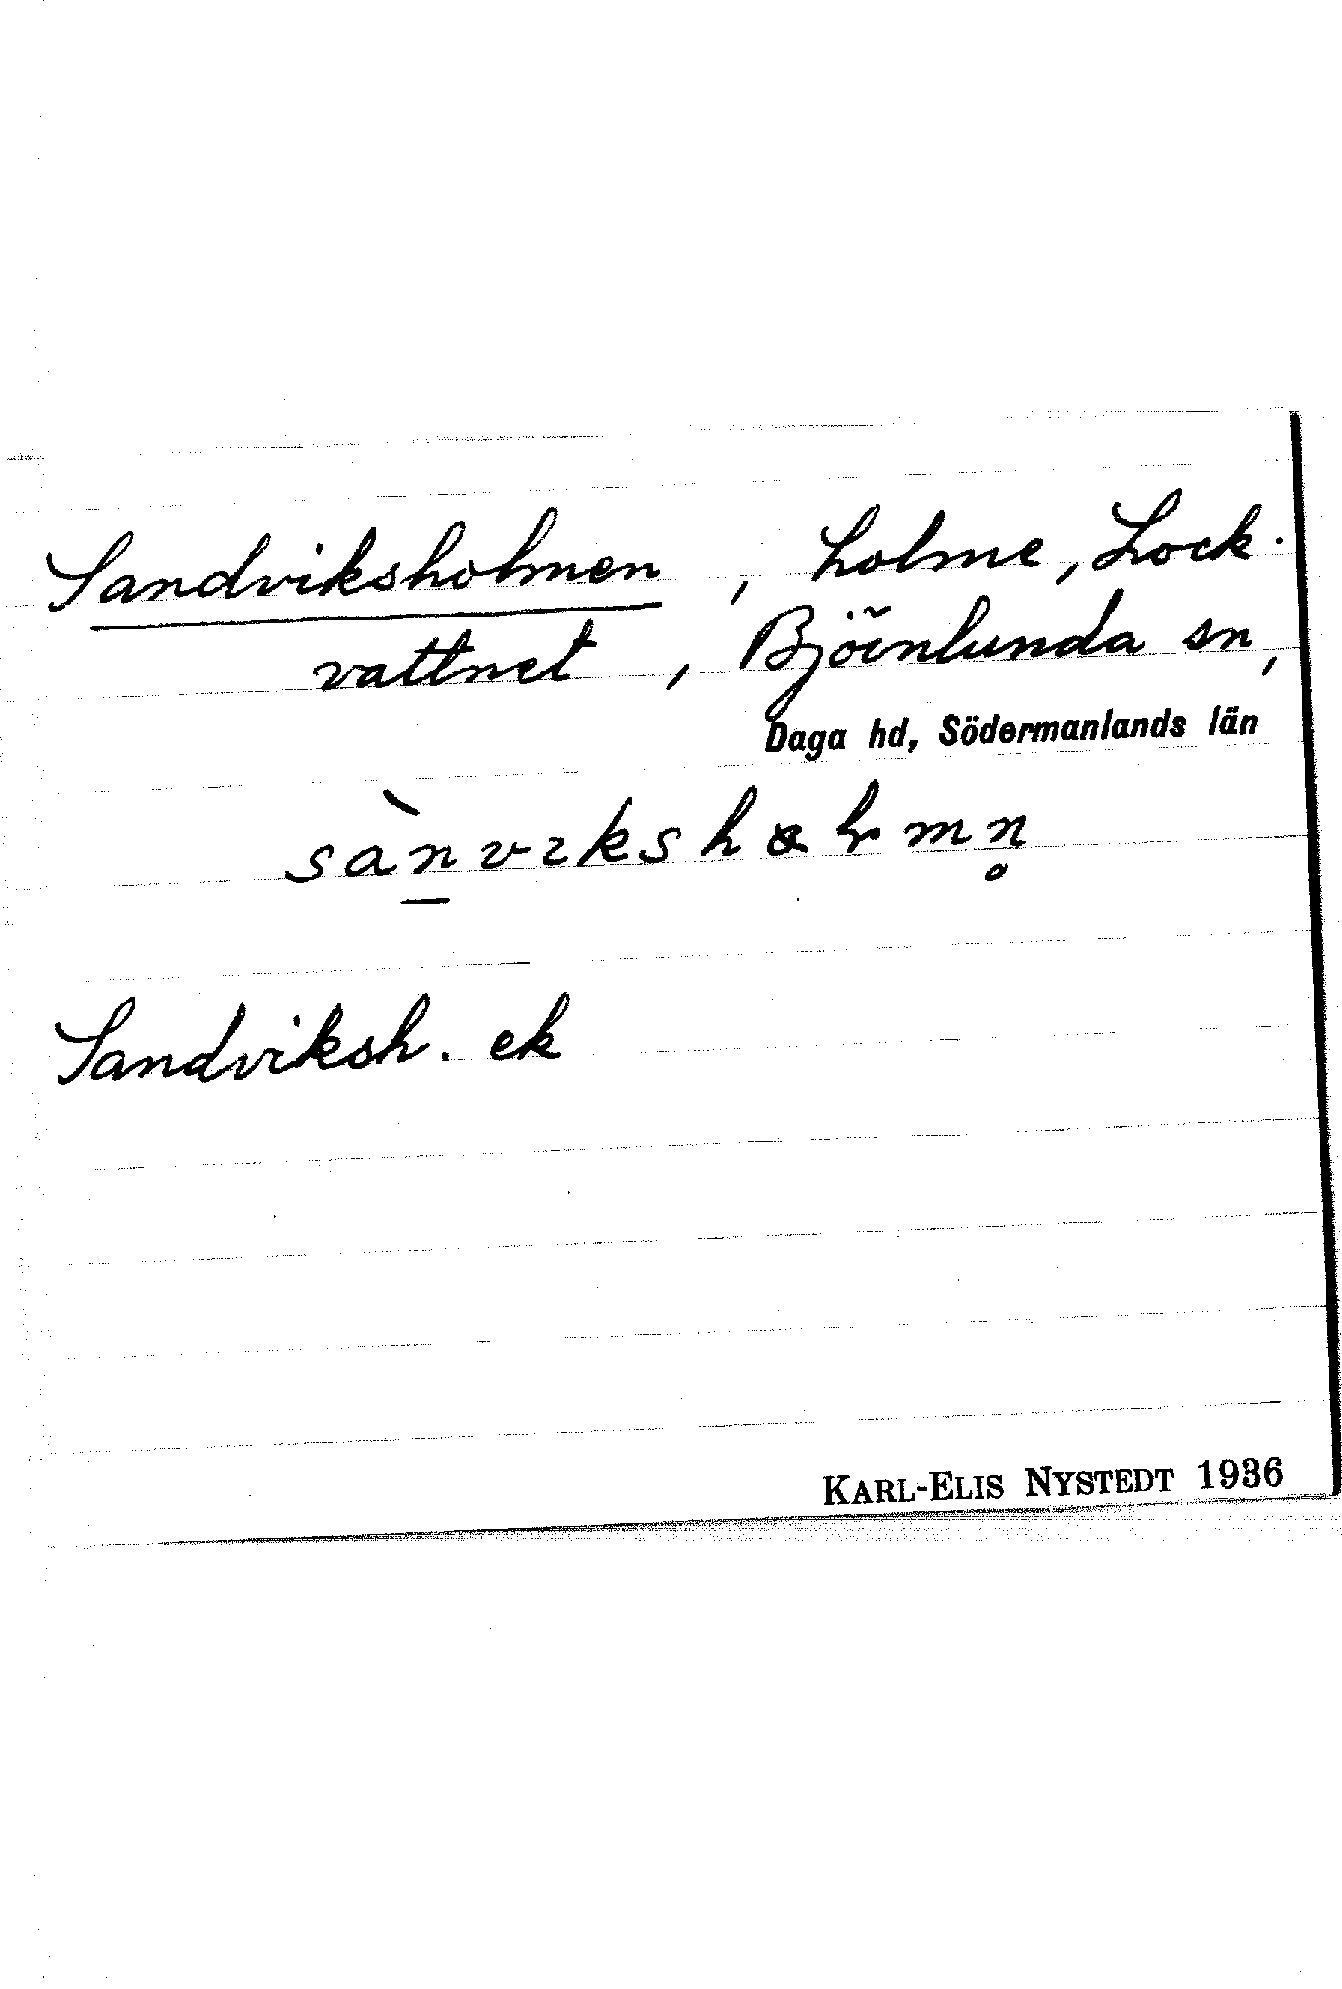 Sandviksholmen, holme, Lock-
vattnet, Björnlunda sn,
Daga hd, Södermanlands län
Sandviksh. ek
KARL-ELIS NYSTEDT 1936